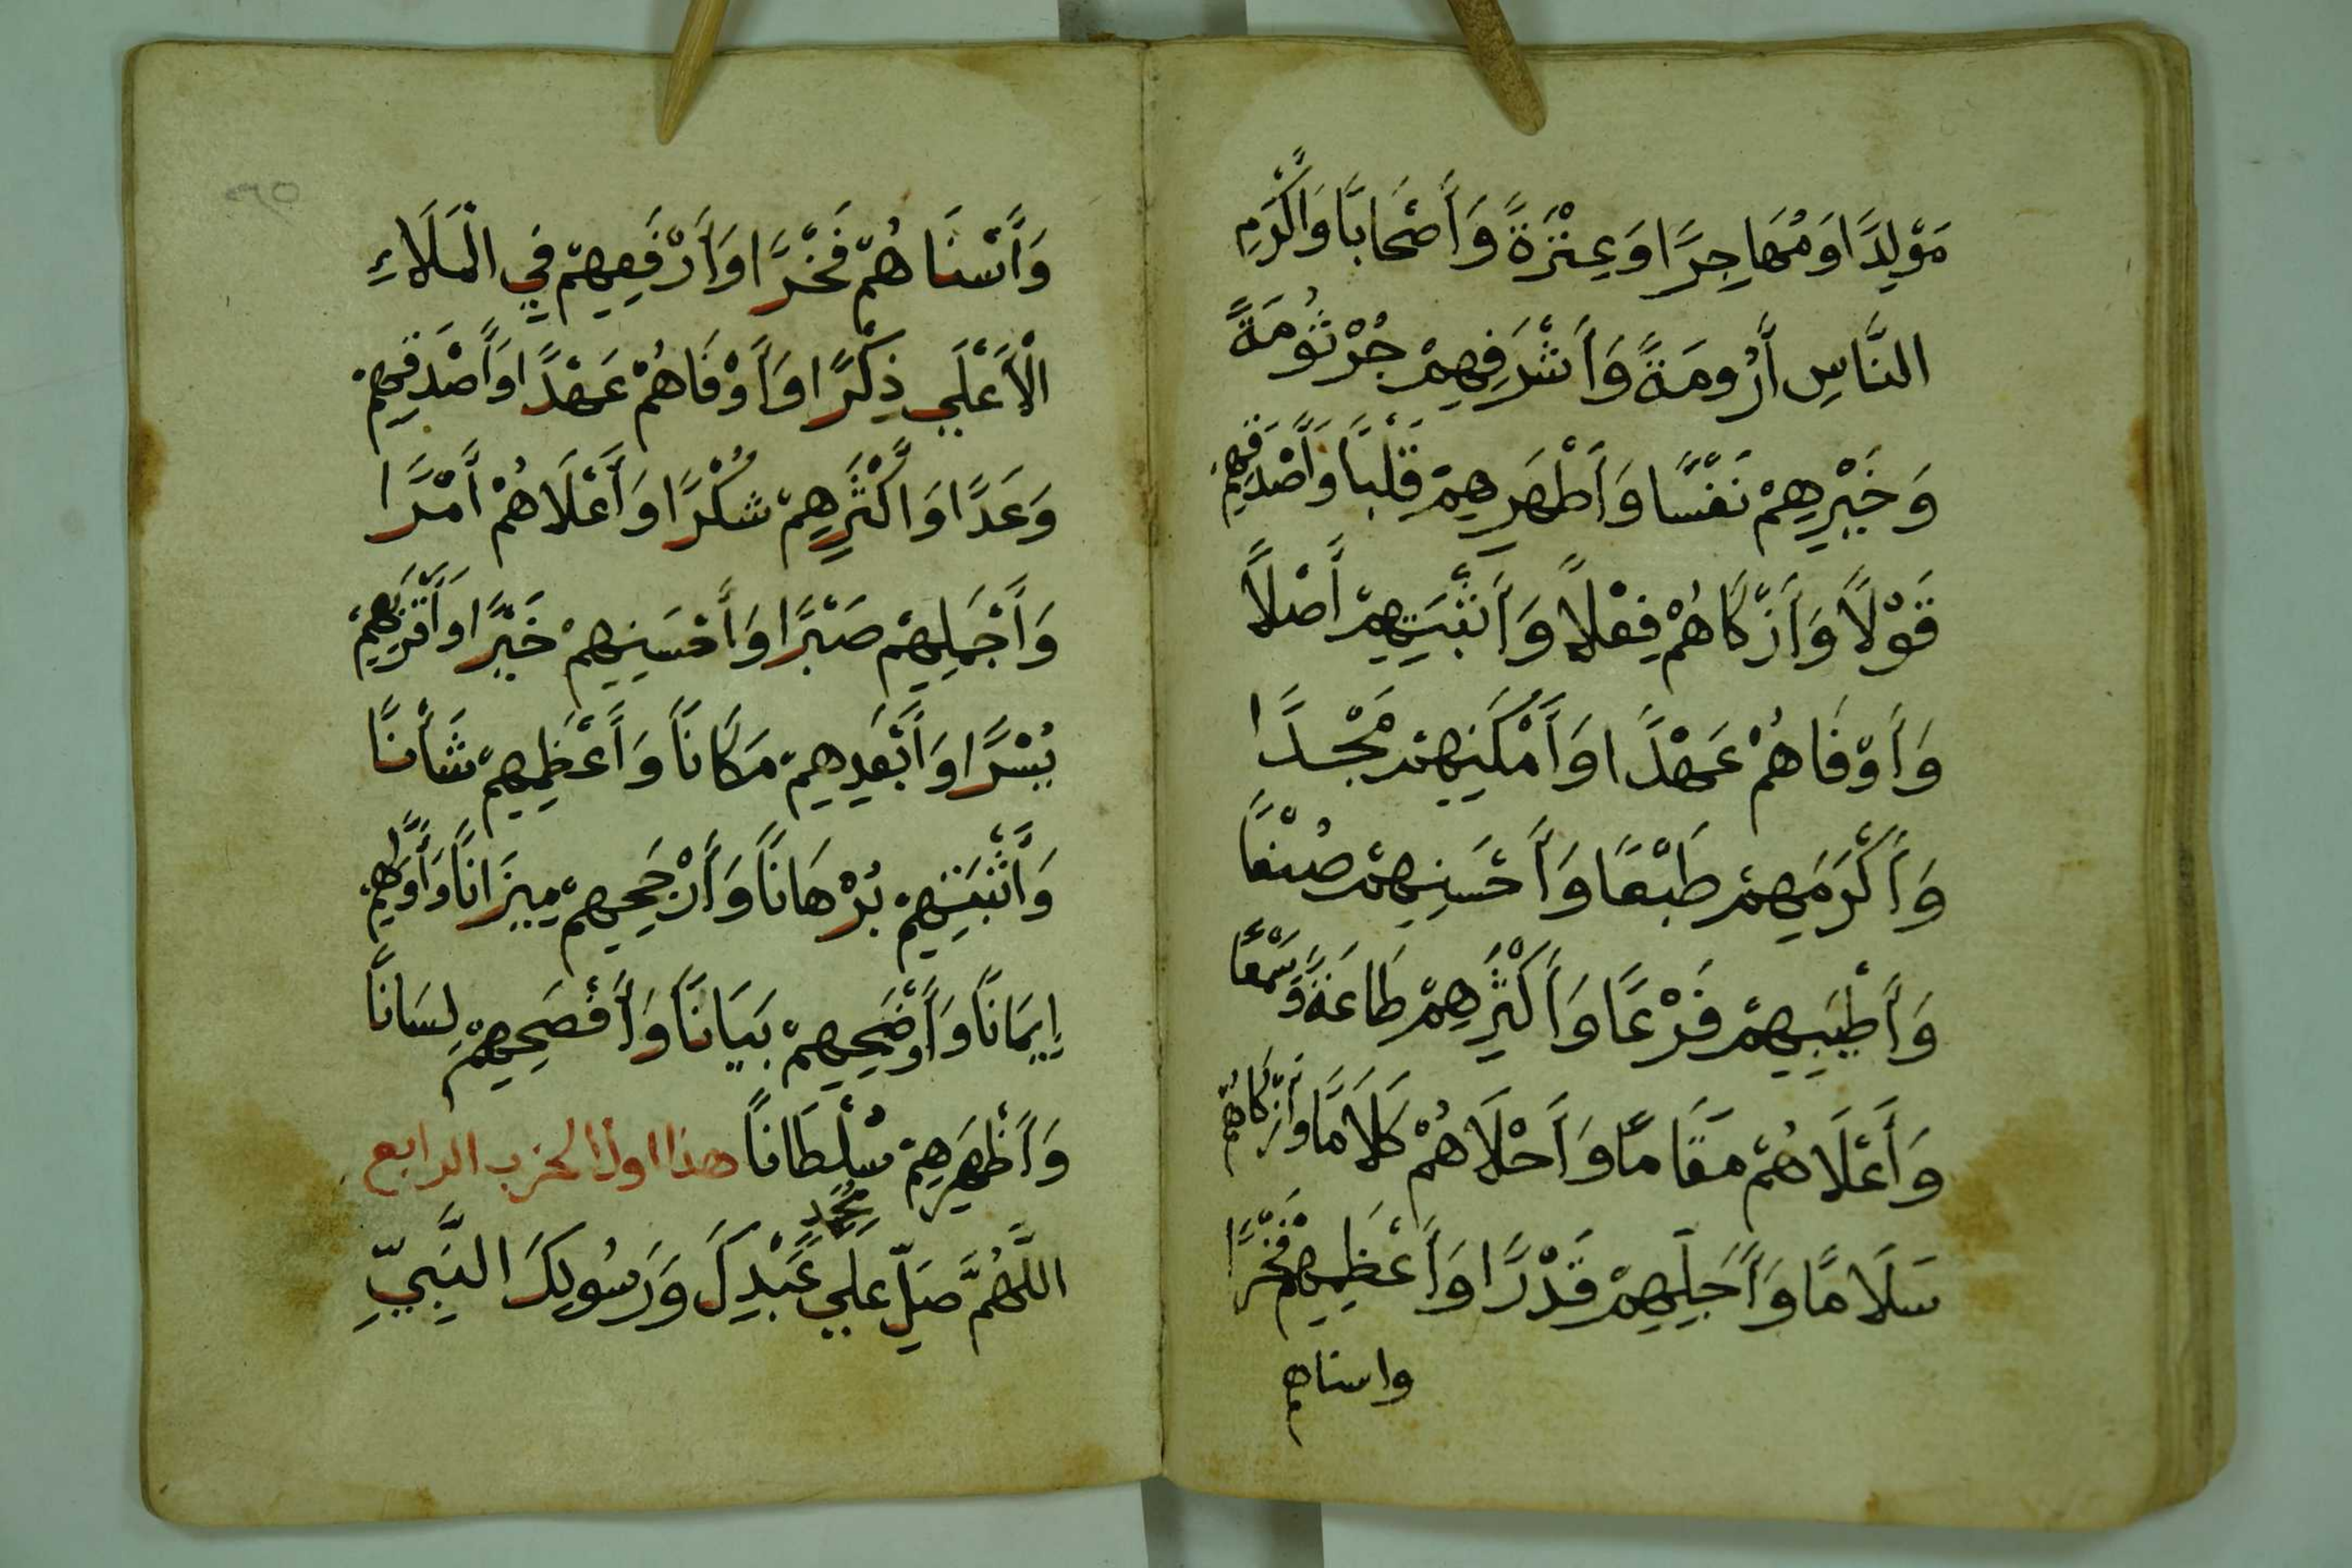 مَوْلِدًا وَمُهَاجِرًا وَعِتْرَةً وَأَصْحَابًا وَأَكْرَمِ
النَّاسِ أَرُومَةً وَأَشْرَفِهِمْ جُرْثُومَةً
وَخَيْرِهِمْ نَفْسًا وَأَطْهَرِهِمْ قَلْبًا وَأَصْدَقِهِمْ
قَوْلًا وَأَزْكَاهُمْ فِعْلًا وَأَثْبَتِهِمْ أَصْلًا
وَأَوْفَاهُمْ عَهْدًا وَأَمْكَنِهِمْ مَجْدًا
وَأَكْرَمِهِمْ طَبْعًا وَأَحْسَنِهِمْ صُنْعًا
وَأَطْيَبِهِمْ فَرْعًا وَأَكْثَرِهِمْ طَاعَةً وَسَمْعًا
وَأَعْلَاهُمْ مَقَامًا وَأَحْلَاهُمْ كَلَامًا وَأَزْكَاهُمْ
سَلَامًا وَأَجَلِّهِمْ قَدْرًا وَأَعْظَمِهِمْ فَخْرًا
واسناهم
وَأَسْنَاهُمْ فَخْرًا وَأَرْفَعِهِمْ فِي الْمَلَاءِ
الْأَعْلَي ذِكْرًا وَأَوْفَاهُمْ عَهْدًا وَأَصْدَقِهِمْ
وَعَدًا وَأَكْثَرِهِمْ شُكْرًا وَأَعْلَاهُمْ أَمْرًا
وَأَجْمَلِهِمْ صَبْرًا وَأَحْسَنِهِمْ خَيْرًا وَأَقْرَبِهِمْ
يُسْرًا وَأَبْعَدِهِمْ مَكَانًا وَأَعْظَمِهِمْ شَأْنًا
وَأَثْبَتِهِمْ بُرْهَانًا وَأَرْجَحِهِمْ مِيزَانًا وَأَوَّلِهِمْ
إِيمَانًا وَأَوْضَحِهِمْ بَيَانًا وَأَفْصَحِهِمْ لِسَانًا
وَأَظْهَرِهِمْ سُلْطَانًا هذا اول الحزب الرابع
اللَّهُمَّ صَلِّ عَلَي مُحَمَّدٍ عَبْدِكَ وَرَسُولِكَ النَّبِيِّ